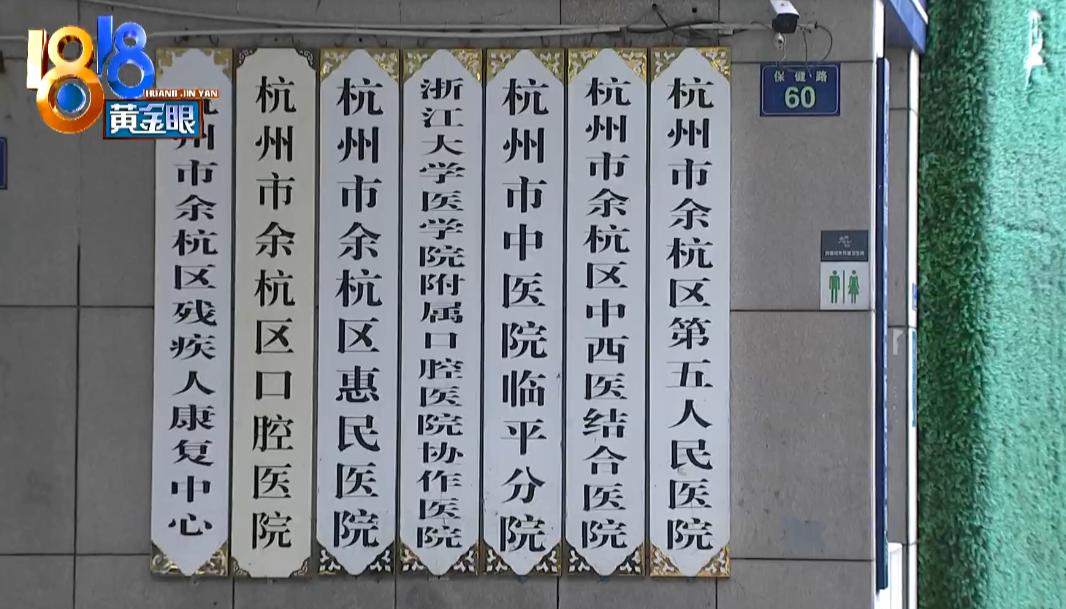 1818
HUANG JIN YAN
黄金眼
州市余杭区残疾人康复中心
杭州市余杭区口腔医院
杭州市余杭区惠民医院
浙江大学医学院附属口腔医院协作医院
杭州市中医院临平分院
杭州市余杭区中西医结合医院
杭州市余杭区第五人民医院
保健路
60